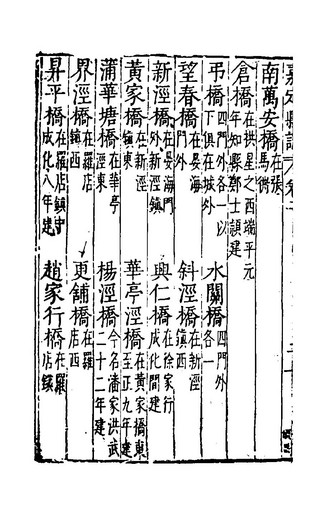 嘉定縣志
南萬安橋在張馬衖
倉橋在拱星之西端平元年知縣鄭士頴建
弔橋四門外各一以下俱在城外 水關橋四門外各一
望春橋在晏海門外 斜涇橋在新涇鎮西
新涇橋在晏海門外新涇鎮 興仁橋在徐家行成化間建
黃家橋在新涇鎮東 華亭涇橋在黃家橋東至正九年建
蒲華塘橋在華亭涇橋東 楊涇橋今名潘家洪武二十二年建
界涇橋在羅店鎮西 更舖橋在羅店西
昇平橋在羅店鎮中成化八年建 趙家行橋在羅店鎮